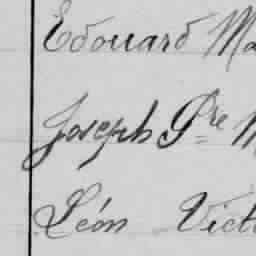 Edouard Ma
Joseph Pre M
Léon Victo